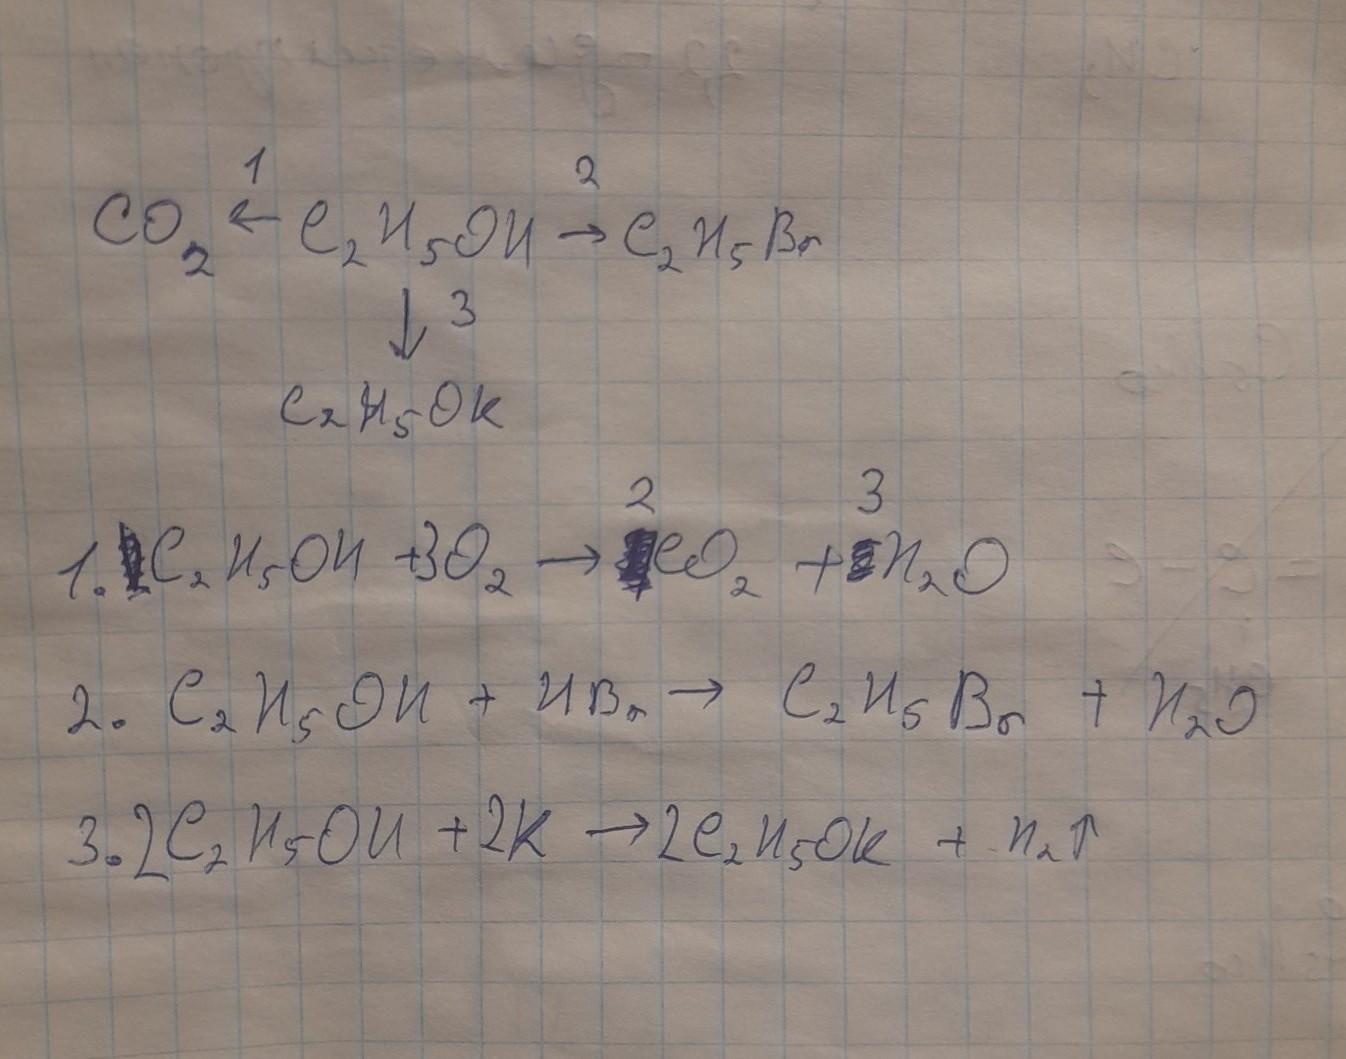 1 2
CO₂ ← C₂H₅OH → C₂H₅Br
↓ 3
C₂H₅OK
2 3
1. C₂H₅OH +3O₂ → CO₂ + H₂O
2. C₂H₅OH + HBr → C₂H₅Br + H₂O
3. 2C₂H₅OH +2K → 2C₂H₅OK + H₂↑